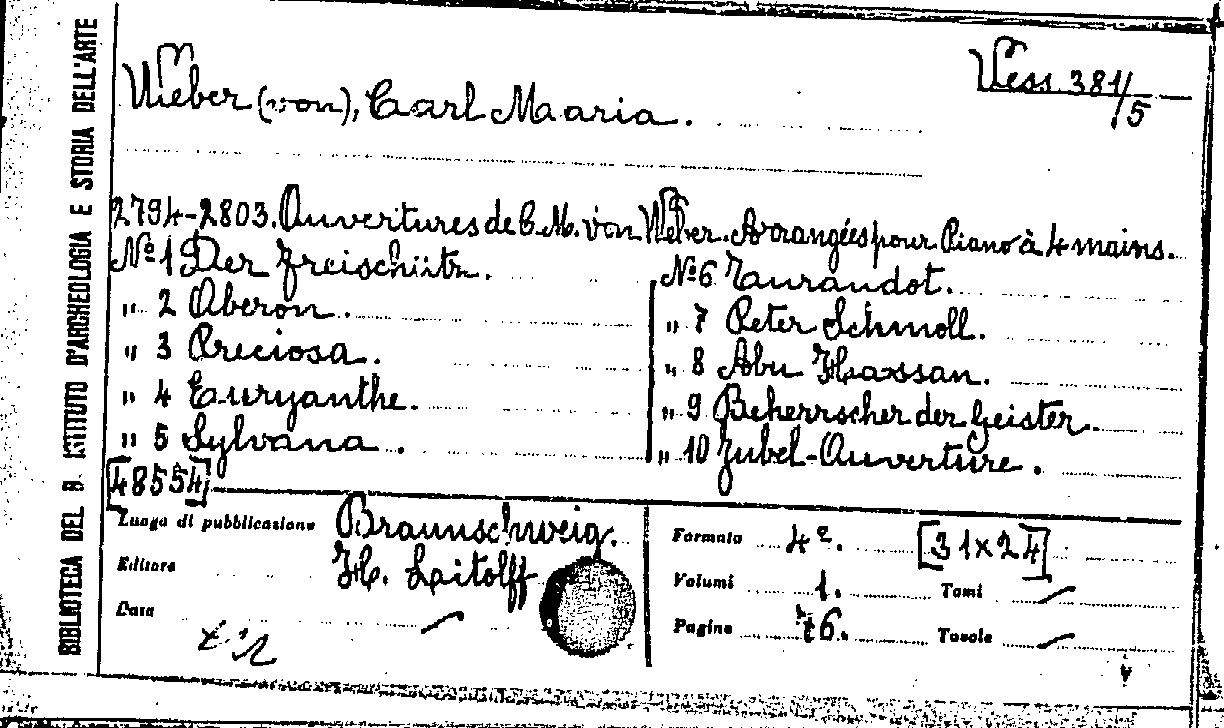 BIBLIOTECA DEL R. ISTITUTO D'ARCHEOLOGIA E STORIA DELL'ARTE
Vess. 381/5
Weber (von), Carl Maria.
2794-2803. Ouvertures de C. M. von Weber. Arrangées pour Piano à 4 mains.
Nº 1 Der Freischütz.
" 2 Oberon.
" 3 Preciosa.
" 4 Euryanthe.
" 5 Sylvana.
Nº 6 Turandot.
" 7 Peter Schmoll.
" 8 Abu Hassan.
" 9 Beherrscher der Geister.
" 10 Jubel-Ouverture.
[48554]
Luogo di pubblicazione Braunschweig.
Editore H. Litolff
Data
Formato 4º. [31x24]
Volumi 1. Tomi
Pagine 76. Tavole